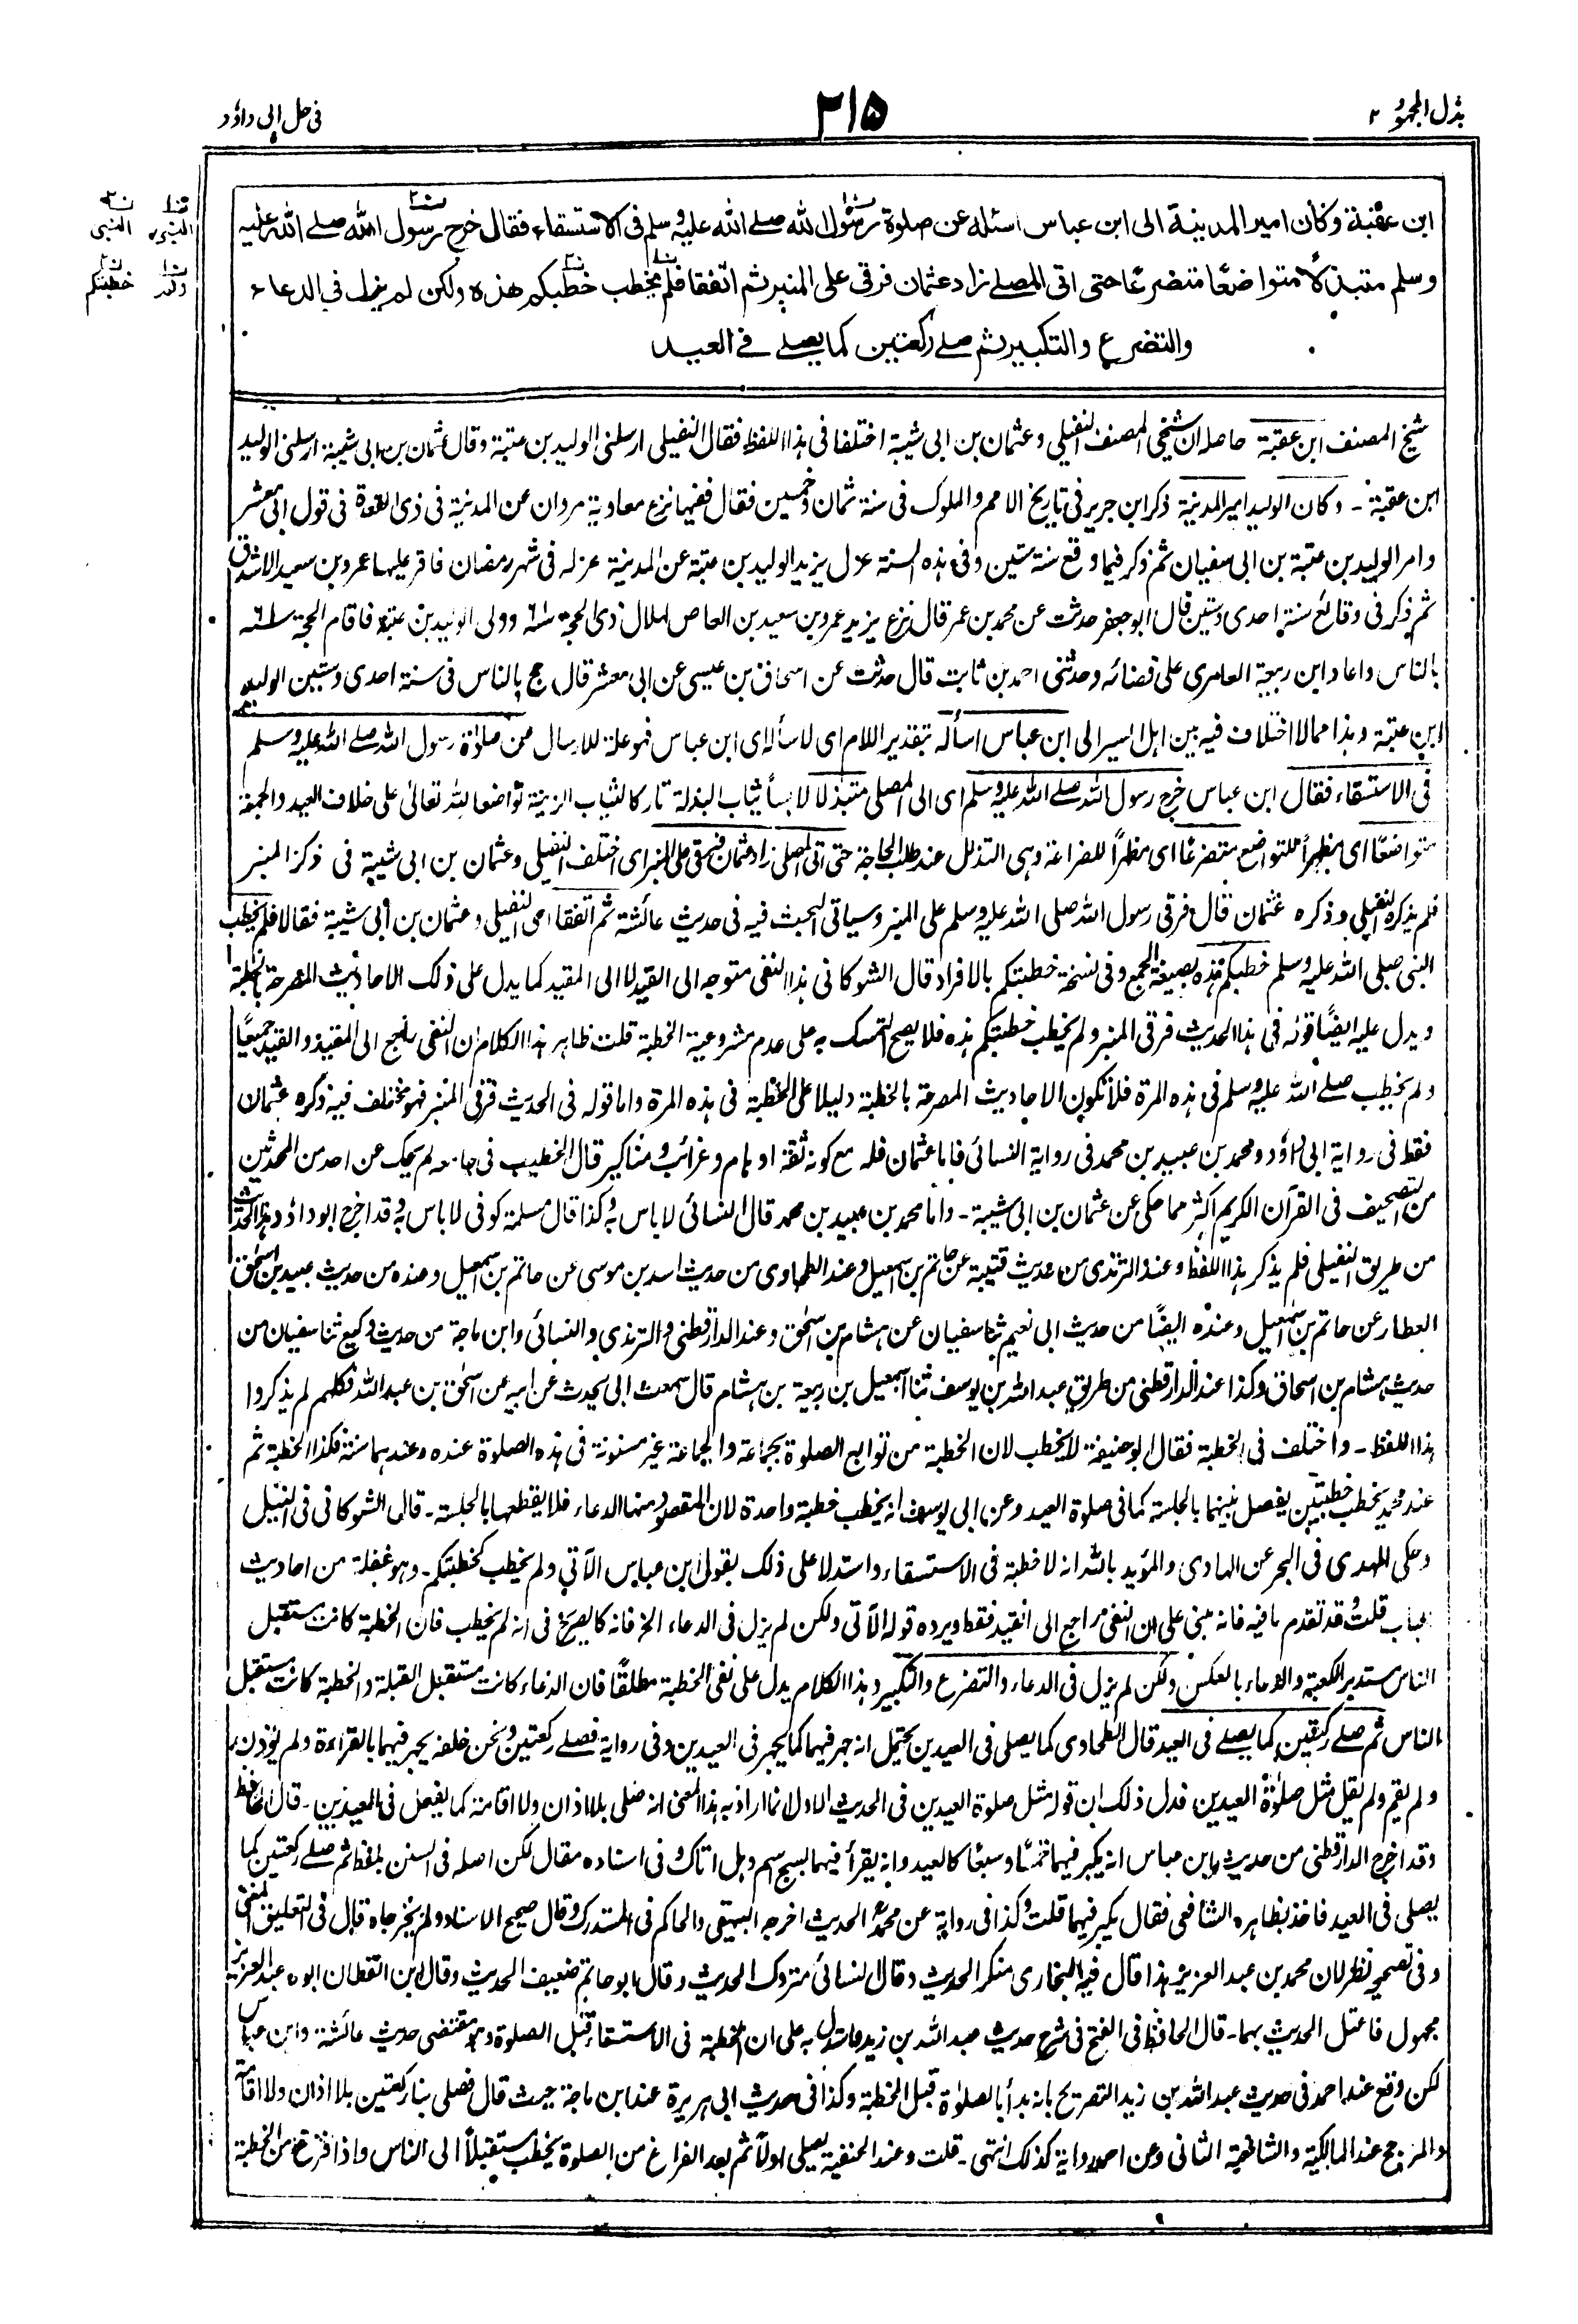 بذل المجهود ٢
٢١٥
في حل ابي داؤد
ن١ النبي
ن٢ النبي
ن١ ولم
ن٢ خطبتكم
ابن عقبة وكان امير المدينة الى ابن عباس اسئله عن صلوة رسول الله صلے الله عليه وسلم فى الاستسقاء فقال خرج رسول الله صلے الله عليه
وسلم متبذلًا متواضعًا متضرعًا حتى اتى المصلے زاد عثمان فرقى على المنبر ثم اتفقا فلم يخطب خطبكم هذه ولكن لم يزل في الدعاء
والتضرع والتكبير ثم صلے ركعتين كما يصلے في العيد
شيخ المصنف ابن عقبة حاصله ان شيخي المصنف النفيلي وعثمان بن ابى شيبة اختلفا فى هذا اللفظ فقال النفيلى ارسلنى الوليد بن عتبة وقال عثمان بن ابى شيبة ارسلنى الوليد
ابن عقبة ـ وكان الوليد امير المدينة ذكر ابن جرير فى تاريخ الامم والملوك فى سنة ثمان وخمسين فقال ففيها نزع معاوية مروان عن المدينة فى ذى القعدة فى قول ابى معشر
وامر الوليد بن عتبة بن ابى سفيان ثم ذكر فيما وقع سنة ستين وفى هذه السنة عزل يزيد الوليد بن عتبة عن المدينة عزله فى شهر رمضان فاقر عليها عمرو بن سعيد الاشدق
ثم ذكر فى وقائع سنة احدى وستين قال ابو جعفر حدثت عن محمد بن عمر قال نزع يزيد عمرو بن سعيد بن العاص لهلال ذى الحجة سنة ٦١ وولى الوليد بن عتبة فاقام الحجة سنة ٦١
بالناس واعاد ابن ربيعة العامرى على قضائه وحدثنى احمد بن ثابت قال حدثت عن اسحاق بن عيسى عن ابى معشر قال حج بالناس فى سنة احدى وستين الوليد
ابن عتبة وهذا مما لا اختلاف فيه بين اهل السير الى ابن عباس اسأله بتقدير اللام اى لاسأله اى ابن عباس فهو علة للارسال عن صلوٰة رسول الله صلے الله عليه وسلم
فى الاستسقاء فقال ابن عباس خرج رسول الله صلے الله عليه وسلم اى الى المصلى متبذلا لابسا ثياب البذلة تاركا لثياب الزينة تواضعا لله تعالى على خلاف العيد والجمعة
متواضعًا اى مظهراً للتواضع متضرعًا اى مظهراً للضراعة وهى التذلل عند طلب الحاجة حتى اتى المصلى زاد عثمان فرقى على المنبر اى اختلف النفيلى وعثمان بن ابى شيبة فى ذكر المنبر
فلم يذكره النفيلى وذكره عثمان فقال فرقى رسول الله صلى الله عليه وسلم على المنبر وسياتى البحث فيه فى حديث عائشة ثم اتفقا اى النفيلى وعثمان بن ابى شيبة فقالا فلم يخطب
النبى صلى الله عليه وسلم خطبكم هذه بصيغة الجمع وفى نسخة خطبتكم بالافراد قال الشوكانى هذا النفى متوجه الى القيد لا الى المقيد كما يدل على ذلك الاحاديث المصرحة بالخطبة
ويدل عليه ايضًا قوله فى هذا الحديث فرقى المنبر ولم يخطب خطبتكم هذه فلا يصح التمسك به على عدم مشروعية الخطبة قلت ظاهر هذا الكلام ان النفى راجع الى المقيد والقيد جميعًا
ولم يخطب صلے الله عليه وسلم فى هذه المرة فلا تكون الاحاديث المصرحة بالخطبة دليلا على الخطبة فى هذه المرة واما قوله فى الحديث فرقى المنبر فهو مختلف فيه ذكره عثمان
فقط فى رواية ابى داؤد ومحمد بن عبيد بن محمد فى رواية النسائى فاما عثمان فله مع كونه ثقة اوهام وغرائب ومناكير قال الخطيب فى جامعه لم يحك عن احد من المحدثين
من التصحيف فى القرآن الكريم اكثر مما حكى عن عثمان بن ابى شيبة ـ واما محمد بن عبيد بن محمد قال النسائى لا باس به وكذا قال مسلمة كوفى لا باس به وقد اخرج ابو داؤد هذا الحديث
من طريق النفيلى فلم يذكر هذا اللفظ وعند الترمذى من حديث قتيبة عن حاتم بن اسمعيل وعند الطحاوى من حديث اسد بن موسى عن حاتم بن اسمعيل وعنده من حديث عبيد بن اسحٰق
العطار عن حاتم بن اسمعيل وعنده ايضًا من حديث ابى نعيم ثنا سفيان عن هشام بن اسحٰق وعند الدارقطنى والترمذى والنسائى وابن ماجة من حديث وكيع ثنا سفيان من
حديث هشام بن اسحاق وكذا عند الدارقطنى من طريق عبد الله بن يوسف ثنا اسمعيل بن ربيعة بن هشام قال سمعت ابى يحدث عن ابيه عن اسحٰق بن عبد الله فكلهم لم يذكروا
هذا اللفظ ـ واختلف فى الخطبة فقال ابو حنيفة لا يخطب لان الخطبة من توابع الصلوة بجماعة والجماعة غير مسنونة فى هذه الصلوة عنده وعندهما سنة فكذا الخطبة ثم
عند محمد يخطب خطبتين يفصل بينهما بالجلسة كما فى صلوة العيد وعن ابى يوسف انه يخطب خطبة واحدة لان المقصود منها الدعاء فلا يقطعها بالجلسة ـ قال الشوكانى فى النيل
وحكى المهدى فى البحر عن الهادى والمؤيد بالله انه لا خطبة فى الاستسقاء واستدلا على ذلك بقول ابن عباس الآتى ولم يخطب كخطبتكم ـ وهو غفلة من احاديث
الباب قلت وقد تقدم ما فيه فانه مبنى على ان النفى راجع الى القيد فقط ويرده قوله الآتى ولكن لم يزل فى الدعاء الخ فانه كالصريح فى انه لم يخطب فان الخطبة كانت مستقبل
الناس مستدبر الكعبة والدعاء بالعكس ولكن لم يزل فى الدعاء والتضرع والتكبير وهذا الكلام يدل على نفى الخطبة مطلقًا فان الدعاء كانت مستقبل القبلة والخطبة كانت مستقبل
الناس ثم صلے ركعتين كما يصلے فى العيد قال الطحاوى كما يصلى فى العيدين يحتمل انه جهر فيهما كما يجهر فى العيدين وفى رواية فصلے ركعتين ونحن خلفه يجهر فيهما بالقراءة ولم يؤذن
ولم يقم ولم يقل مثل صلوٰة العيدين فدل ذلك ان قوله مثل صلوة العيدين فى الحديث الاول انما اراد به هذا المعنى انه صلى بلا اذان ولا اقامة كما يفعل فى العيدين ـ قال الحافظ
وقد اخرج الدارقطنى من حديث ابن عباس انه يكبر فيهما خمسًا وسبعًا كالعيد وانه يقرأ فيهما بسبح اسم وهل اتاك وفى اسناده مقال لكن اصله فى السنن بلفظ ثم صلے ركعتين كما
يصلى فى العيد فاخذ بظاهره الشافعى فقال يكبر فيهما قلت وكذا فى رواية عن محمد الحديث اخرجه البيهقى والحاكم فى المستدرك وقال صحيح الاسناد ولم يخرجاه قال فى التعليق المغنى
وفى تصحيحه نظر لان محمد بن عبد العزيز هذا قال فيه البخارى منكر الحديث وقال النسائى متروك الحديث وقال ابو حاتم ضعيف الحديث وقال ابن القطان ابوه عبد العزيز
مجهول فاعتل الحديث بهما ـ قال الحافظ فى الفتح فى شرح حديث عبد الله بن زيد واستدل به على ان الخطبة فى الاستسقاء قبل الصلوة وهو مقتضى حديث عائشة وابن عباس
لكن وقع عند احمد فى حديث عبد الله بن زيد التصريح بانه بدأ بالصلوٰة قبل الخطبة وكذا فى حديث ابى هريرة عند ابن ماجة حيث قال فصلى بنا ركعتين بلا اذان ولا اقامة
والمرجح عند المالكية والشافعية الثانى وعن احمد رواية كذلك انتهى ـ قلت وعند الحنفية يصلى اولاً ثم بعد الفراغ من الصلوة يخطب مستقبلاً الى الناس واذا فرغ من الخطبة